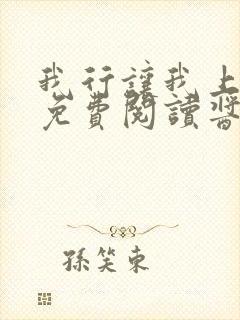 我行讓我上
免費閱讀醬
孫笑東